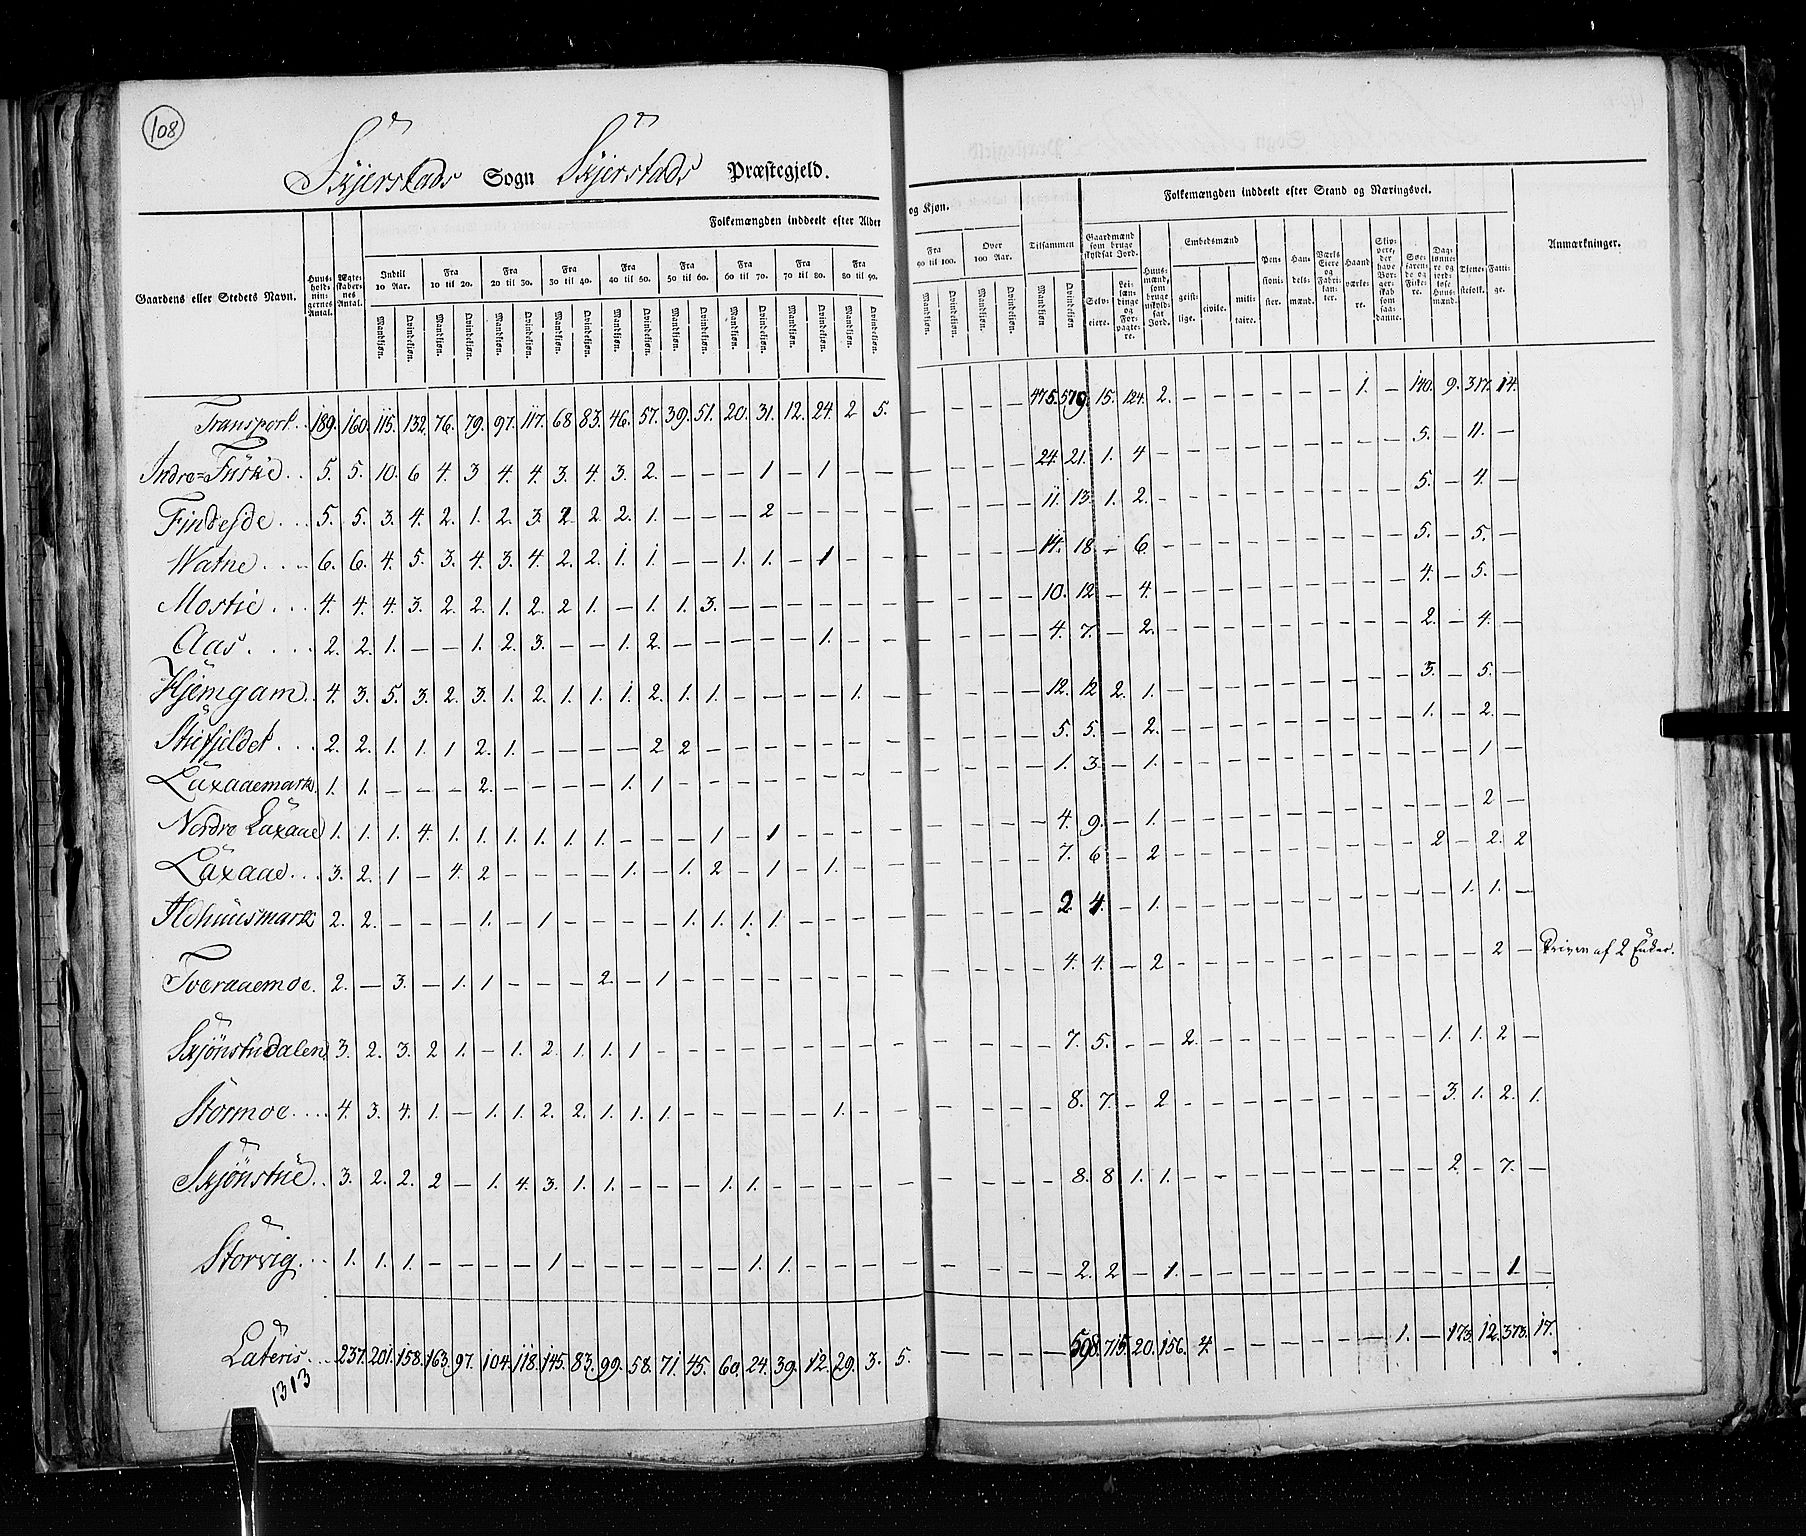 108
Skjerstads Sogn Skjerstads Præstegjeld.
Gaardens eller Stedets Navn. Huusholdningernes Antal. Ægteskabernes Antal. Folkemængden inddeelt efter Alder og Kjøn. Tilsammen Folkemængden inddeelt efter Stand og Næringsvei. Anmærkninger.
Indtil 10 Aar. Fra 10 til 20. Fra 20 til 30. Fra 30 til 40. Fra 40 til 50. Fra 50 til 60. Fra 60 til 70. Fra 70 til 80. Fra 80 til 90. Fra 90 til 100. Over 100 Aar.
Gaardmænd som bruge skyldsat Jord. Selveiere. Leilændinge og Forpagtere. Huusmænd, som bruge uskyldsat Jord. Embedsmænd geistlige. civile. militaire. Pensionister. Handelsmænd. Værks Eiere og Fabrikanter. Haandværkere. Skippere, der have Borgerskab som saadanne. Søefarende og Fiskere. Daglønnere og jordløse Huusmænd. Tjenestefolk. Fattige.
Mandkjøn. Qvindekjøn. Mandkjøn. Qvindekjøn. Mandkjøn. Qvindekjøn. Mandkjøn. Qvindekjøn. Mandkjøn. Qvindekjøn. Mandkjøn. Qvindekjøn. Mandkjøn. Qvindekjøn. Mandkjøn. Qvindekjøn. Mandkjøn. Qvindekjøn. Mandkjøn. Qvindekjøn. Mandkjøn. Qvindekjøn. Mandkjøn Qvindekjøn
Transport. 189. 160. 115. 132. 76. 79. 97. 117. 68 83. 46. 57. 39. 51. 20. 31. 12. 24. 2 5. — — — — 475. 579. 15. 124. 2. — — — — — — 1. — 140. 9. 317. 14.
Indre=Fuske. 5. 5. 10. 6 4. 3 4. 4. 3. 4. 3. 2. — — — 1 — 1. — — — — — — 24. 21. 1. 4 — — — — — — — — — 5. — 11. —
Findesde 5. 5. 3. 4. 2. 1. 2. 3. 2 2. 2. 1. — — — 2 — — — — — — — — 11. 13. 1. 2. — — — — — — — — — 5. — 4. —
Watne 6. 6. 4. 5. 3. 4. 3. 4. 2. 2. 1. 1. — — 1. 1. — 1 — — — — — — 14. 18 — 6. — — — — — — — — — 5. — 5. —
Mostie 4. 4. 4. 3. 2. 2. 1. 2. 2 1. — 1. 1. 3. — — — — — — — — — — 10. 12 — 4. — — — — — — — — — 4. — 5. —
Aas 2. 2. 1. — — 1. 2. 3. — — 1. 2. — — — — — 1. — — — — — — 4. 7. — 2. — — — — — — — — — 2. — 4. —
Hjemgam 4. 3. 5. 3. 2. 3. 1. 2. 1. 1. 1. 2. 1. 1. — — — — 1. — — — — — 12. 12 2. 1. — — — — — — — — — 3. — 5. —
Stiffjeldet 2. 2. 1. 1. 1 2. 1. — — — — 2 2 — — — — — — — — — — — 5. 5. — 2. — — — — — — — — — 1. — 2. —
Laxaaemark 1. 1. — — — 2. — — — — 1. 1 — — — — — — — — — — — — 1. 3. — 1. — — — — — — — — — — — 1 —
Nordre Laxaae 1. 1. 1. 4. 1. 1. 1. 1. 1. 1. — — — 1 — 1 — — — — — — — — 4. 9. — 1. — — — — — — — — — — — 2 —
Laxaae 3. 2. 1 — 4. 2 — — — — 1. — 1. 2 — 1 — 1. — — — — — — 7. 6 — 2 — — — — — — — — — 2 — 2. 2
Ildhuusmark 2. 2. — — — 1. — 1 — — — — 1. 1. 1. 1. — — — — — — — — 2. 4. — 1. — — — — — — — — — — 1. 1. —
Tveraaemoe. 2. — 3. — 1. 1 — — — 2. — 1 — — — — — — — — — — — — 4. 4. — 2 — — — — — — — — — — — 2 — Driven af 2 Enker.
Skjönstudalen 3. 2. 3. 2 1. — 1. 2. 1. 1. 1 — — — — — — — — — — — — — 7. 5. — — 2. — — — — — — — — 1. 1. 2 —
Stormoe 4. 3. 4. 1. — 1. 1. 2. 2. 1. 1. 1. — — — — — 1. — — — — — — 8. 7. — 2 — — — — — — — — — 3. 1. 2. 1.
Skjönstue 3. 2. 2. 2 — 1. 4. 3. 1. 1. — — — 1. 1. — — — — — — — — — 8. 8 1. 1. — — — — — — — — — 2. — 7. —
Storvig 1. 1. 1. — — — — 1 — — — — — — 1. 1. — — — — — — — — 2. 2 — 1. — — — — — — — — — — — 1 —
Lateris 237. 201. 158. 163. 97. 104. 118. 145. 83. 99. 58. 71. 45. 60. 24. 39. 12. 29. 3. 5. — — — — 598. 715. 20. 156. 4. — — — — — — 1. — 173. 12. 373. 17.
1313